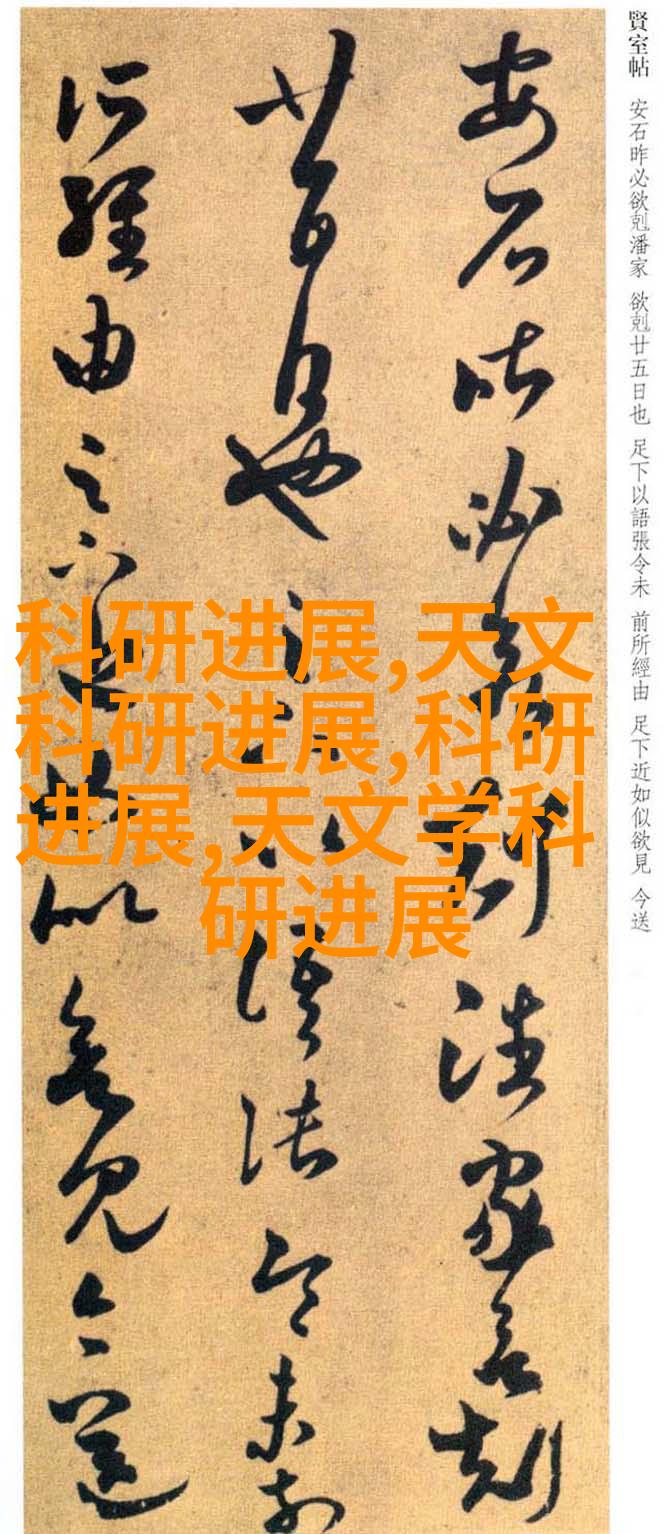 賢室帖 安石昨必欲剋潘家 欲剋廿五日也 足下以語張令未 前所經由 足下近如似欲見 今送
安石昨必欲剋潘家欲剋
廿五日也足下以語張令未前
所經由足下近如似欲見今送
科研进展,天文
科研进展,科研
进展,天文学科
研进展